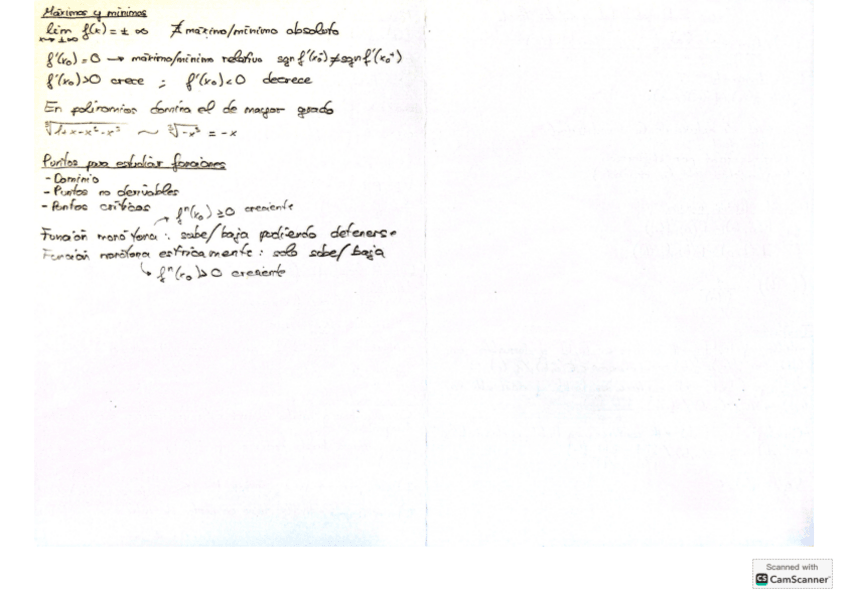 Máximos y mínimos
lim f(x) = ± ∞ ∄ máximo/mínimo absoluto
x→ ±∞
f'(x₀) = 0 → máximo/mínimo relativo sgn f'(x₀⁻) ≠ sgn f'(x₀⁺)
f'(x₀) > 0 crece ; f'(x₀) < 0 decrece
En polinomios domina el de mayor grado
∛1+x-x²-x³ ~ ∛-x³ = -x
Puntos para estudiar funciones
- Dominio
- Puntos no derivables
- Puntos críticos
→ fⁿ(x₀) ≥ 0 creciente
Función monótona : sube/baja pudiendo detenerse
Función monótona estricamente : solo sube/baja
↳ fⁿ(x₀) > 0 creciente
Scanned with
CS CamScanner